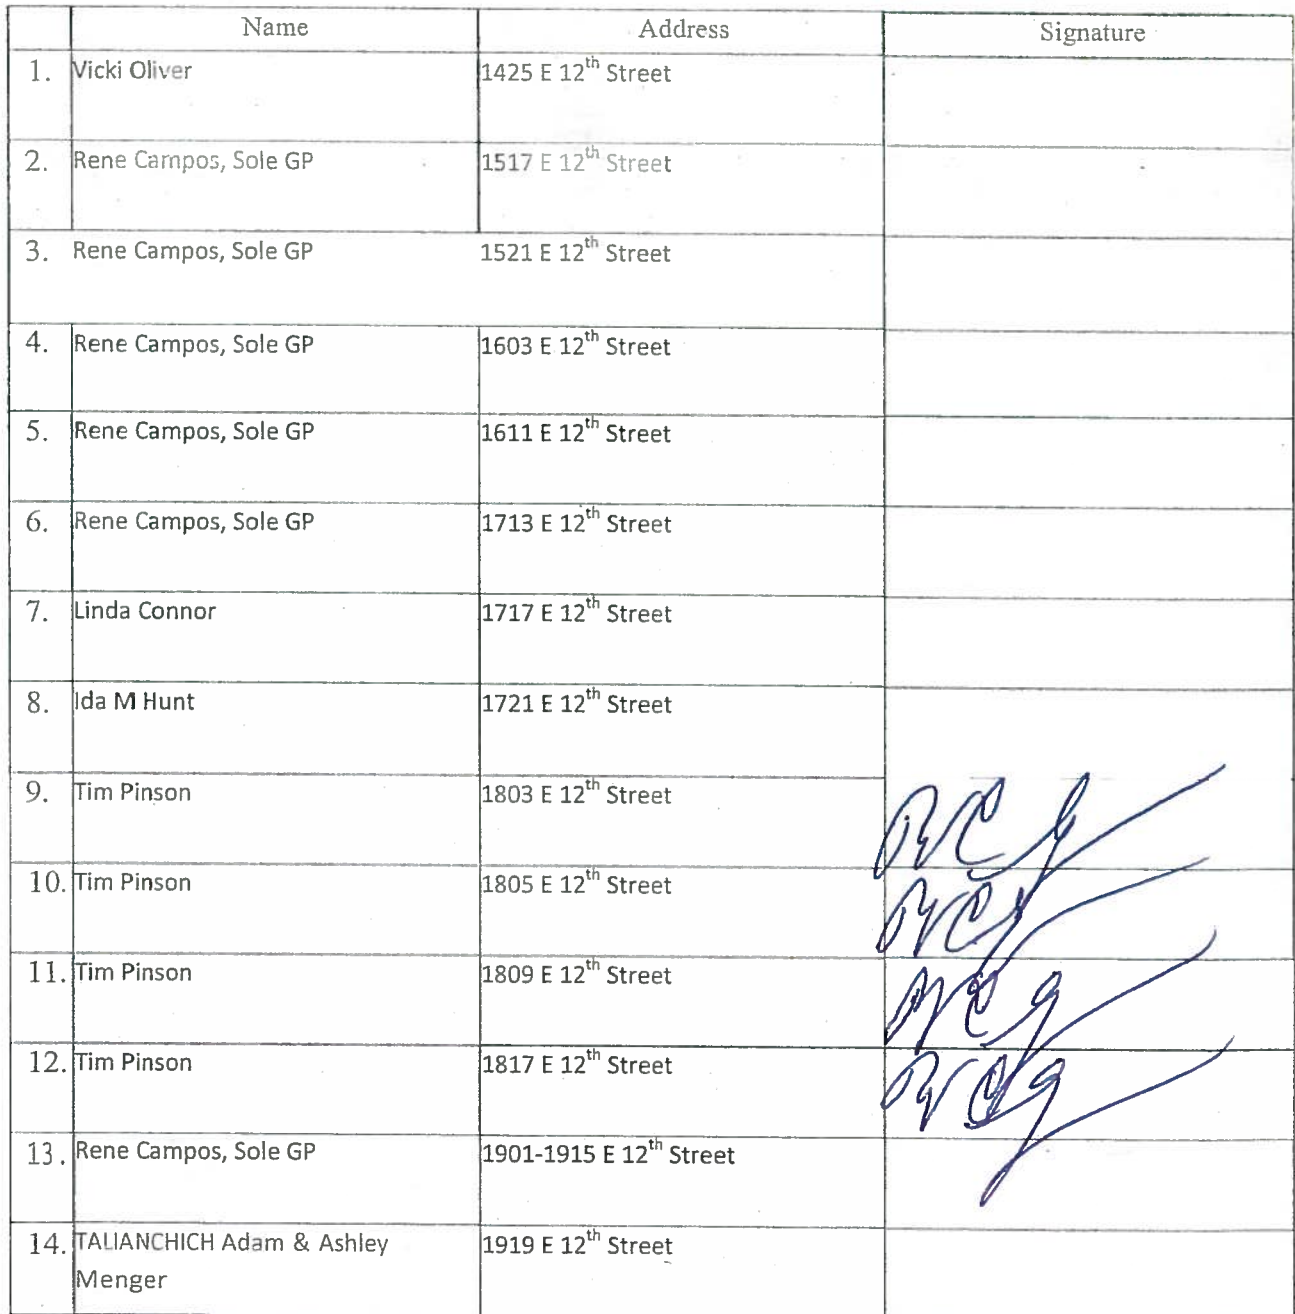 Name Address Signature
1. Vicki Oliver 1425 E 12th Street
2. Rene Campos, Sole GP 1517 E 12th Street
3. Rene Campos, Sole GP 1521 E 12th Street
4. Rene Campos, Sole GP 1603 E 12th Street
5. Rene Campos, Sole GP 1611 E 12th Street
6. Rene Campos, Sole GP 1713 E 12th Street
7. Linda Connor 1717 E 12th Street
8. Ida M Hunt 1721 E 12th Street
9. Tim Pinson 1803 E 12th Street
10. Tim Pinson 1805 E 12th Street
11. Tim Pinson 1809 E 12th Street
12. Tim Pinson 1817 E 12th Street
13. Rene Campos, Sole GP 1901-1915 E 12th Street
14. TALIANCHICH Adam & Ashley 1919 E 12th Street
Menger